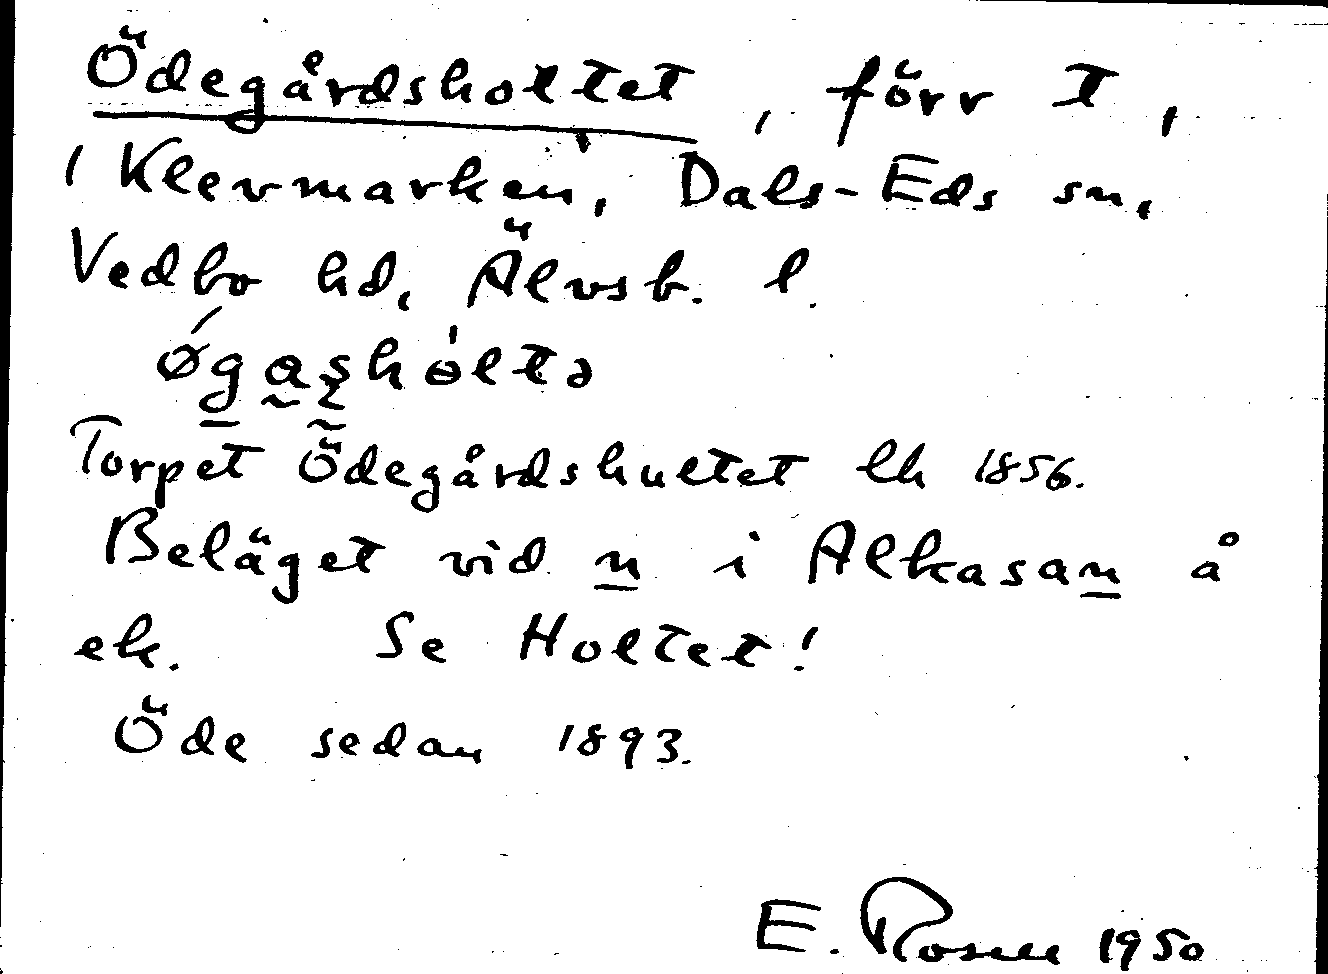 Ödegårdsholtet, förr t,
i Klevmarken, Dals-Eds sn,
Vedbo hd, Älvsb. l.
ǿgas̨hòltə
Torpet Ödegårdshultet lh 1856.
Beläget vid n i Alkasan å
ek. Se Holtet!
Öde sedan 1893.
E. Rosell 1950